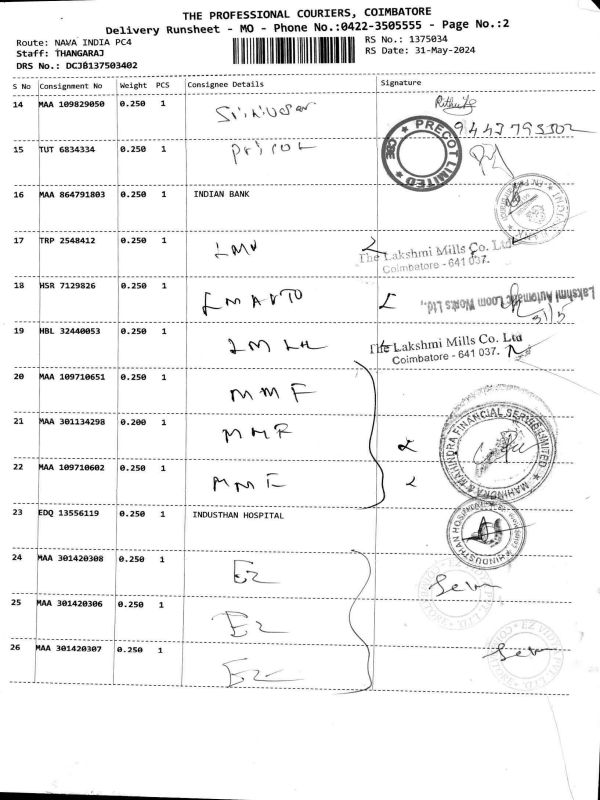 THE PROFESSIONAL COURIERS, COIMBATORE
Delivery Runsheet - MO - Phone No.:0422-3505555 - Page No.:2
Route: NAVA INDIA PC4 RS No.: 1375034
Staff: THANGARAJ RS Date: 31-May-2024
DRS No.: DCJB137503402
S No Consignment No Weight PCS Consignee Details Signature
14 MAA 109829050 0.250 1
PRECOT LIMITED CBE
15 TUT 6834334 0.250 1
16 MAA 864791803 0.250 1 INDIAN BANK
17 TRP 2548412 0.250 1
The Lakshmi Mills Co. Ltd
Coimbatore - 641 037.
18 HSR 7129826 0.250 1 LM AUTO
Lakshmi Automatic Loom Works Ltd.,
31/5
19 HBL 32440053 0.250 1
The Lakshmi Mills Co. Ltd
Coimbatore - 641 037.
20 MAA 109710651 0.250 1 MMF
21 MAA 301134298 0.200 1 MMF
MAHINDRA & MAHINDRA FINANCIAL SERVICES LIMITED
22 MAA 109710602 0.250 1 MMF
23 EDQ 13556119 0.250 1 INDUSTHAN HOSPITAL
HINDUSTHAN HOSPITAL
24 MAA 301420308 0.250 1 Ez
25 MAA 301420306 0.250 1 Ez
26 MAA 301420307 0.250 1 Ez